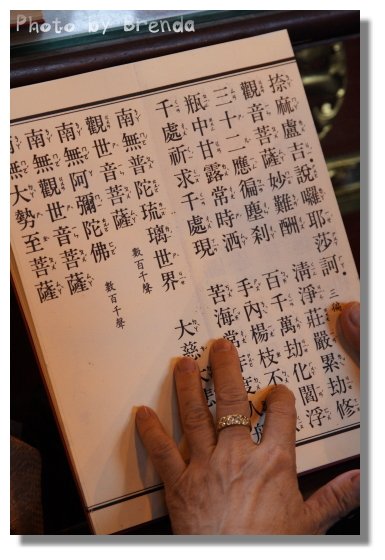 Photo by Brenda
捺麻盧吉.說囉耶莎訶. 三徧
觀音菩薩妙難酬 清淨莊嚴累劫修
三十二應徧塵剎 百千萬劫化閻浮
瓶中甘露常時洒 手內楊枝不
千處祈求千處現 苦海常
南無普陀琉璃世界 大慈
觀世音菩薩 數百千聲
南無阿彌陀佛 數百千聲
南無觀世音菩薩
南無大勢至菩薩